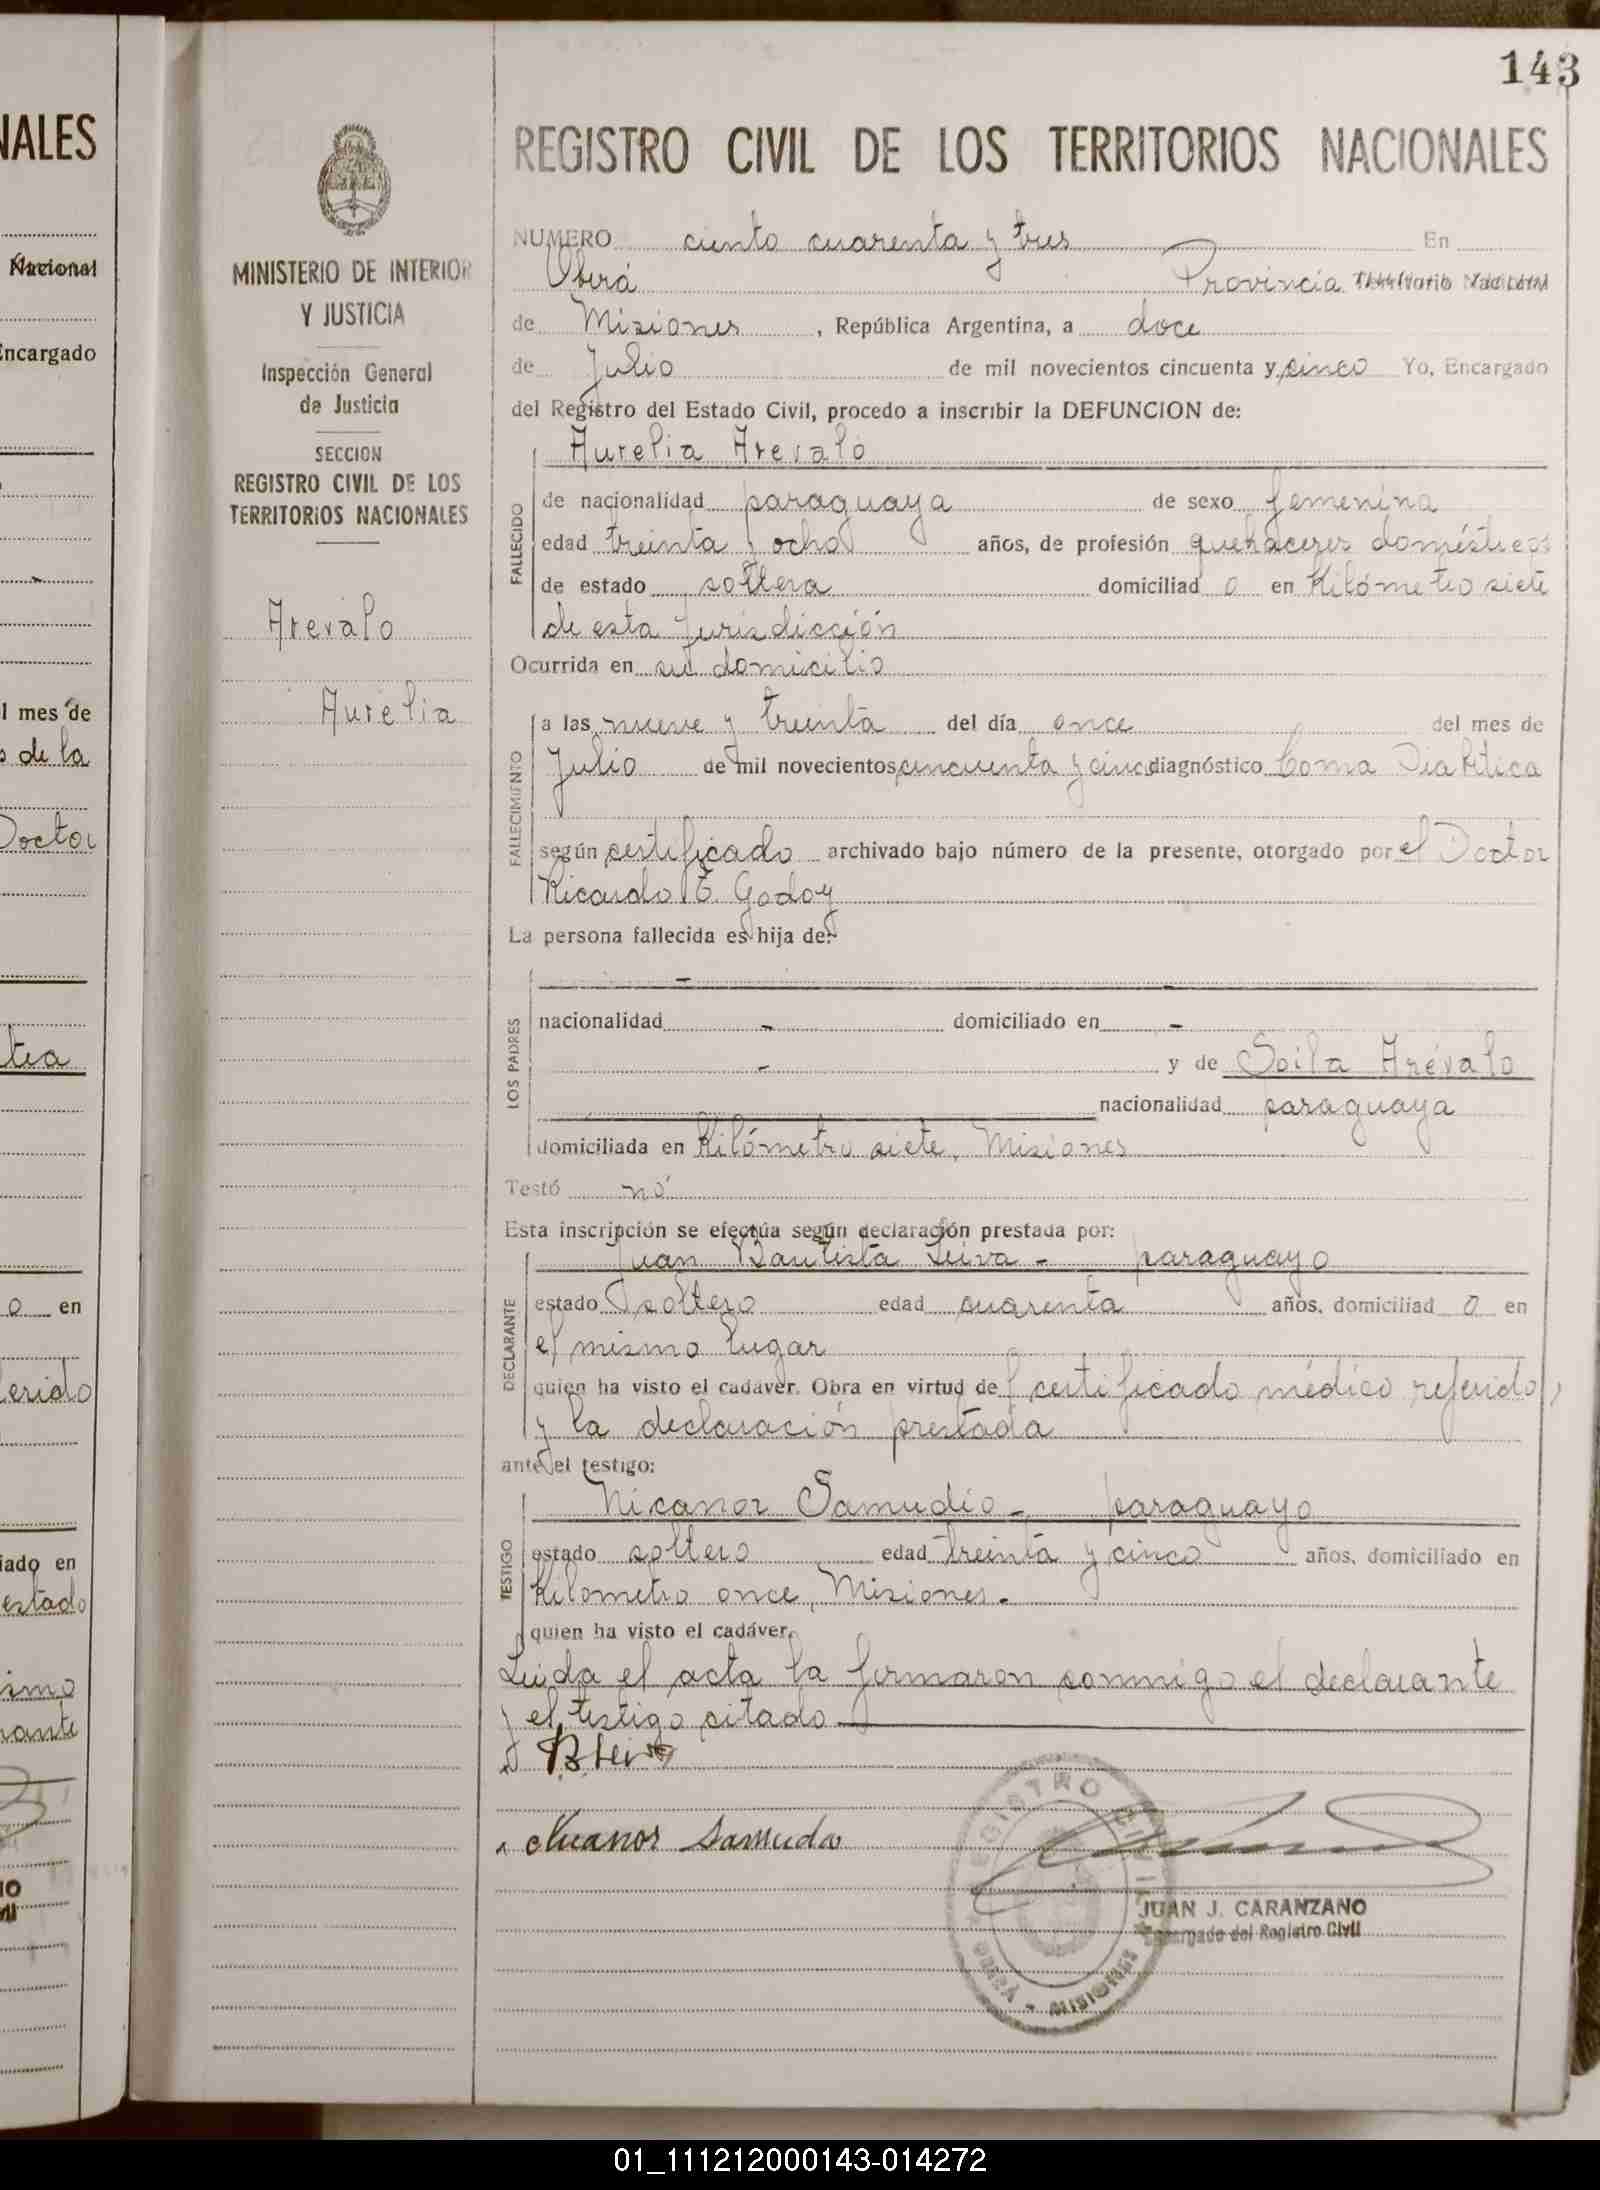 143
NALES
Nacional
Encargado
l mes de
s de la
Doctor
o en
iado en
estado
MINISTERIO DE INTERIOR
Y JUSTICIA
Inspección General
de Justicia
SECCION
REGISTRO CIVIL DE LOS
TERRITORIOS NACIONALES
Arevalo
Aurelia
REGISTRO CIVIL DE LOS TERRITORIOS NACIONALES
NUMERO ciento cuarenta y tres En
Oberá Provincia Territorio Nacional
de Misiones , República Argentina, a doce
de Julio de mil novecientos cincuenta y cinco Yo, Encargado
del Registro del Estado Civil, procedo a inscribir la DEFUNCION de:
Aurelia Arevalo
FALLECIDO
de nacionalidad paraguaya de sexo femenina
edad treinta y ocho años, de profesión quehaceres domésticos
de estado soltera domiciliad o en Kilómetro siete
de esta jurisdicción
Ocurrida en su domicilio
FALLECIMIENTO
a las nueve y treinta del día once del mes de
Julio de mil novecientos cincuenta y cinco diagnóstico Coma Diabética
según certificado archivado bajo número de la presente, otorgado por el Doctor
Ricardo E. Godoy
La persona fallecida es hija de:
LOS PADRES
- -
nacionalidad - domiciliado en -
- y de Soila Arévalo
nacionalidad paraguaya
domiciliada en Kilómetro siete, Misiones
Testó nó
Esta inscripción se efectúa según declaración prestada por:
Juan Bautista Leiva - paraguayo
DECLARANTE
estado soltero edad cuarenta años, domiciliad o en
el mismo lugar
quien ha visto el cadáver. Obra en virtud del certificado médico referido,
y la declaración prestada
ante el testigo:
Nicanor Samudio - paraguayo
TESTIGO
estado soltero edad treinta y cinco años, domiciliado en
Kilometro once, Misiones.-
quien ha visto el cadáver.
Leida el acta la firmaron conmigo el declarante
y el testigo citado
B. Leiva
Nicanor Samudio
REGISTRO CIVIL
MISIONES
JUAN J. CARANZANO
Encargado del Registro Civil
01_111212000143-014272